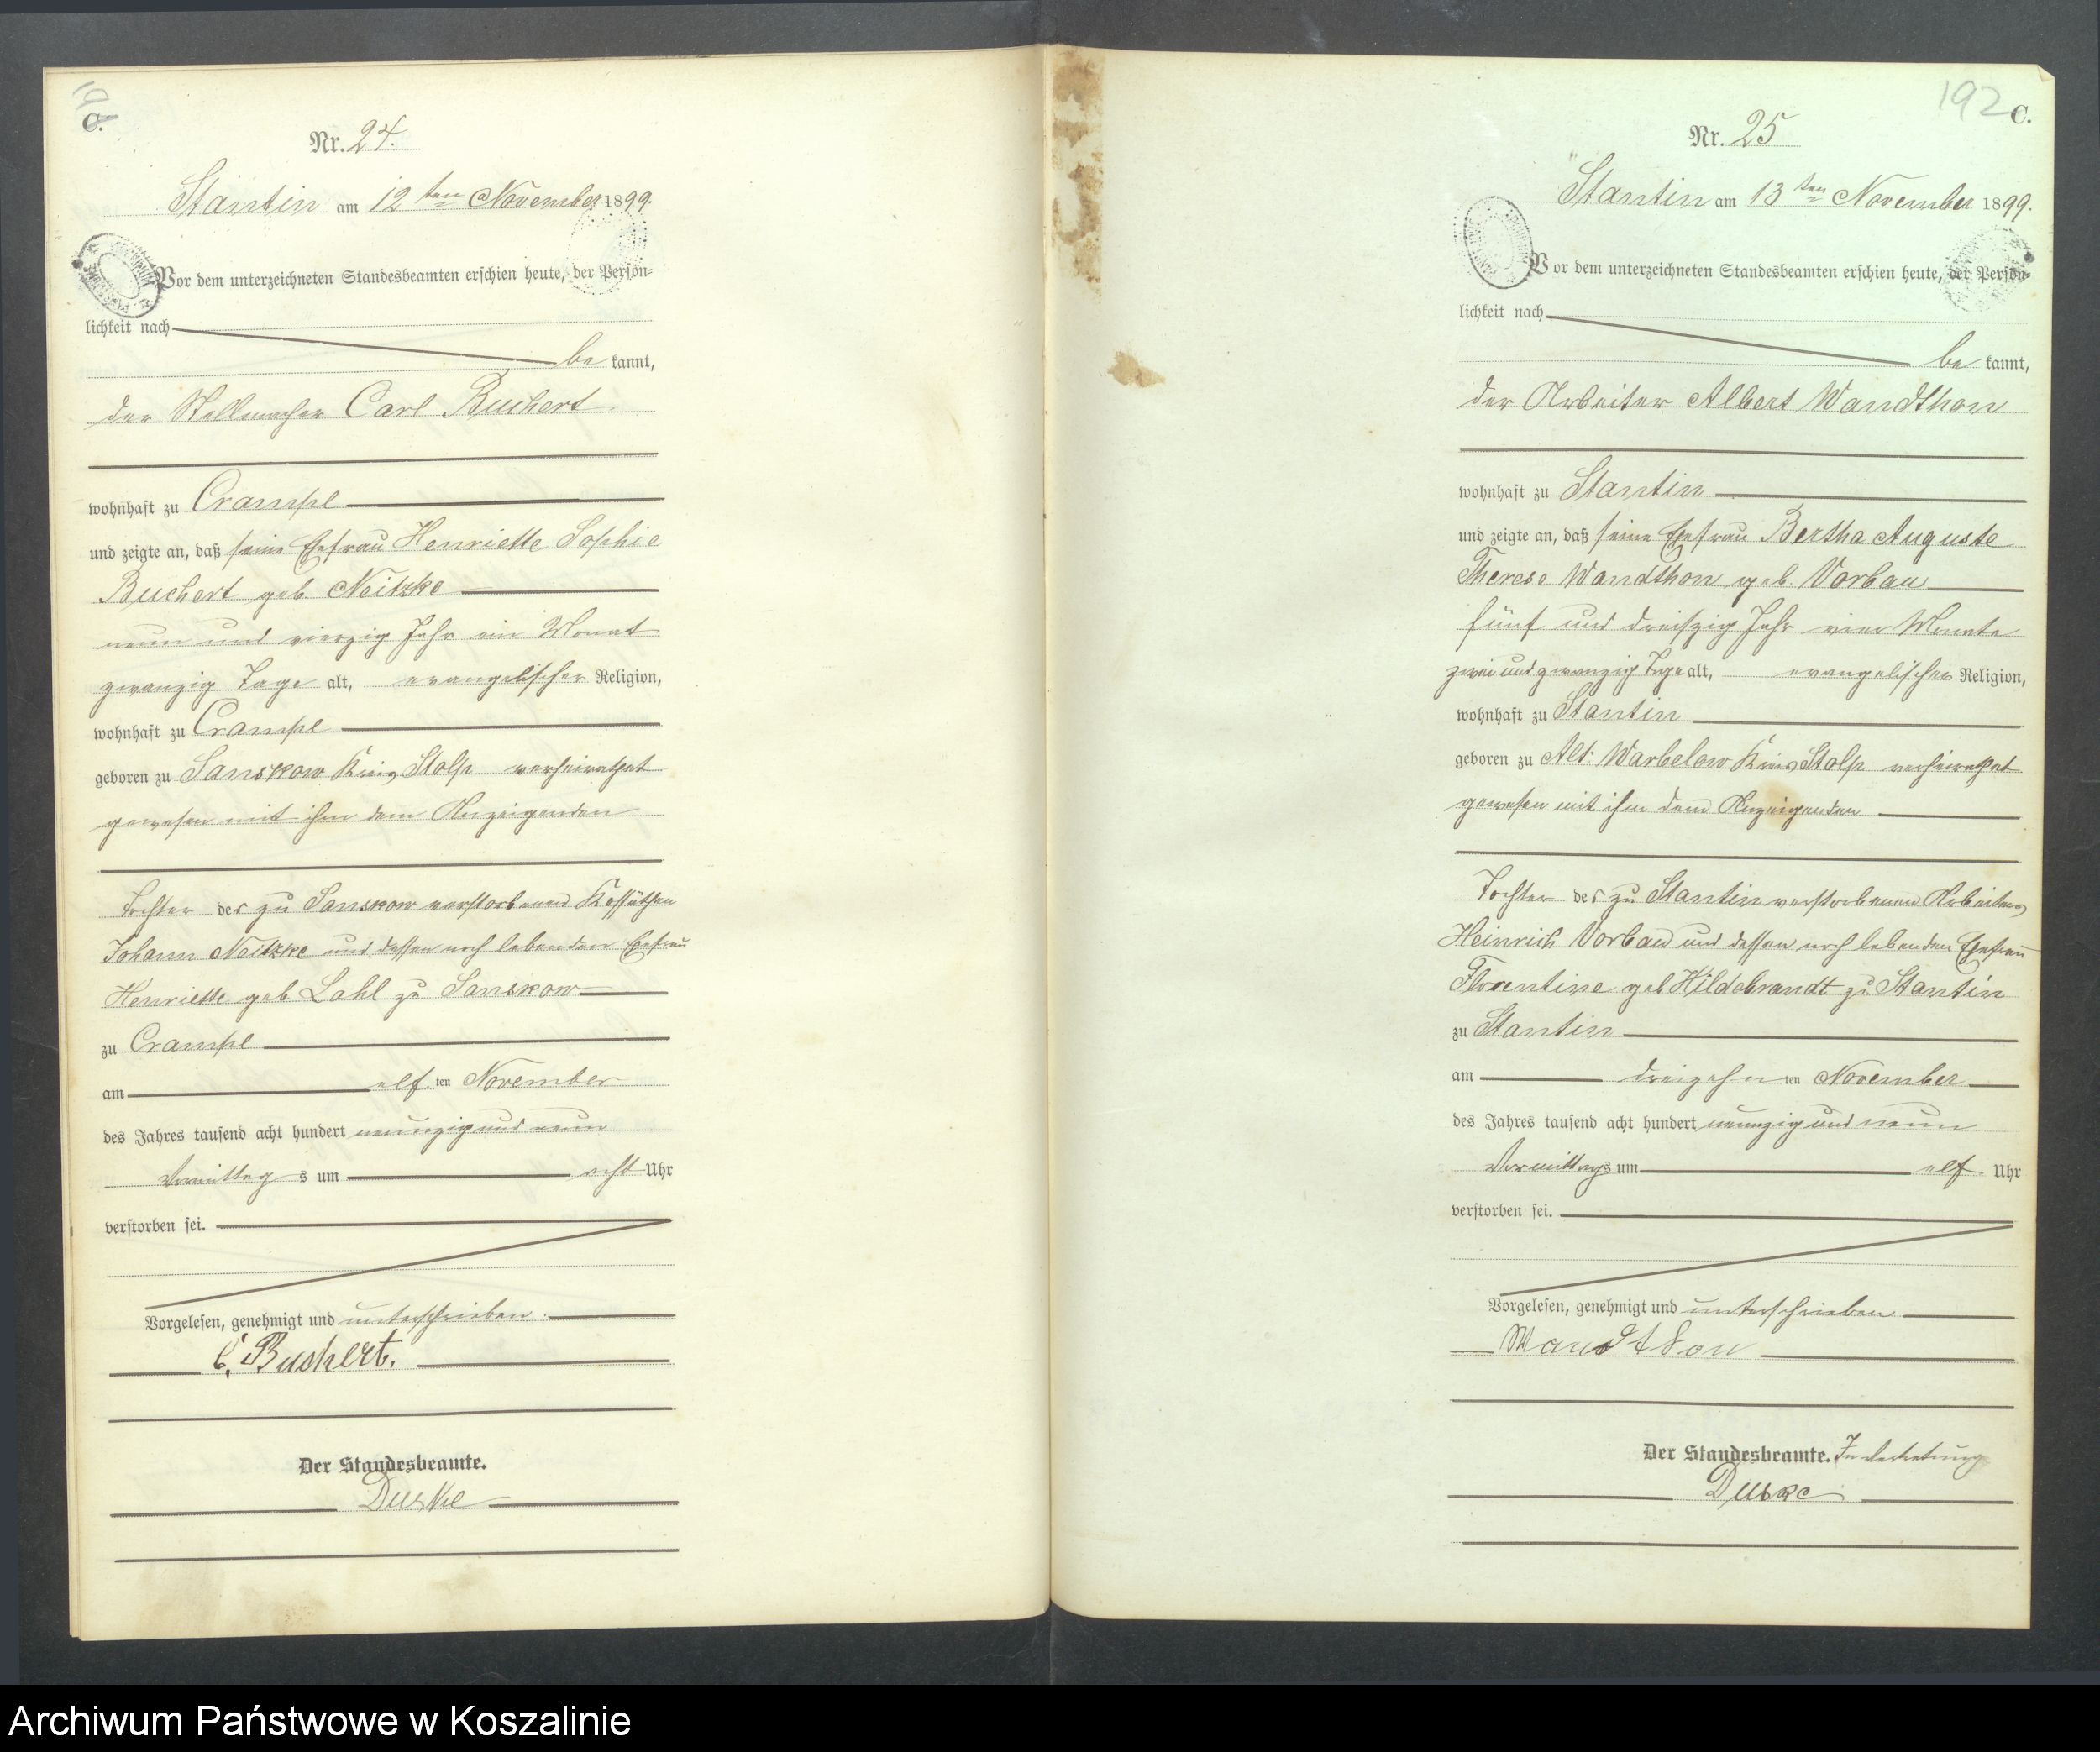 191
C.
Nr. 24.
Stantin am 12ten November 1899.
Vor dem unterzeichneten Standesbeamten erschien heute, der Persön=
lichkeit nach
be kannt,
der Stellmacher Carl Buchert
wohnhaft zu Crampe
und zeigte an, daß seine Ehefrau Henriette Sophie
Buchert geb Neitzke
neun und vierzig Jahr ein Monat
zwanzig Tage alt, evangelischer Religion,
wohnhaft zu Crampe
geboren zu Sanskow Kreis Stolp verheirathet
gewesen mit ihm dem Anzeigenden
Tochter des zu Sanskow verstorbenen Kossäthen
Johann Neitzke und dessen noch lebenden Ehefrau
Henriette geb Lahl zu Sanskow
zu Crampe
am elf ten November
des Jahres tausend acht hundert neunzig und neun
Vormittag s um acht Uhr
verstorben sei.
Vorgelesen, genehmigt und unterschrieben.
C. Buchert.
Der Standesbeamte.
Duske
192
C.
Nr. 25
Stantin am 13ten November 1899.
Vor dem unterzeichneten Standesbeamten erschien heute, der Persön=
lichkeit nach
be kannt,
der Arbeiter Albert Wandthon
wohnhaft zu Stantin
und zeigte an, daß seine Ehefrau Bertha Auguste
Therese Wandthon geb. Vorbau
fünf und dreiszig Jahr vier Monate
zwei und zwanzig Tage alt, evangelischer Religion,
wohnhaft zu Stantin
geboren zu Alt: Warbelow Kreis Stolp verheirathet
gewesen mit ihm dem Anzeigenden
Tochter des zu Stantin verstorbenen Arbeiters
Heinrich Vorbau und dessen noch lebenden Ehefrau
Florentine geb Hildebrandt zu Stantin
zu Stantin
am dreizehn ten November
des Jahres tausend acht hundert neunzig und neun
Vormittags um elf Uhr
verstorben sei.
Vorgelesen, genehmigt und unterschrieben
Wandthon
Der Standesbeamte. In Vertretung
Duske
Archiwum Państwowe w Koszalinie